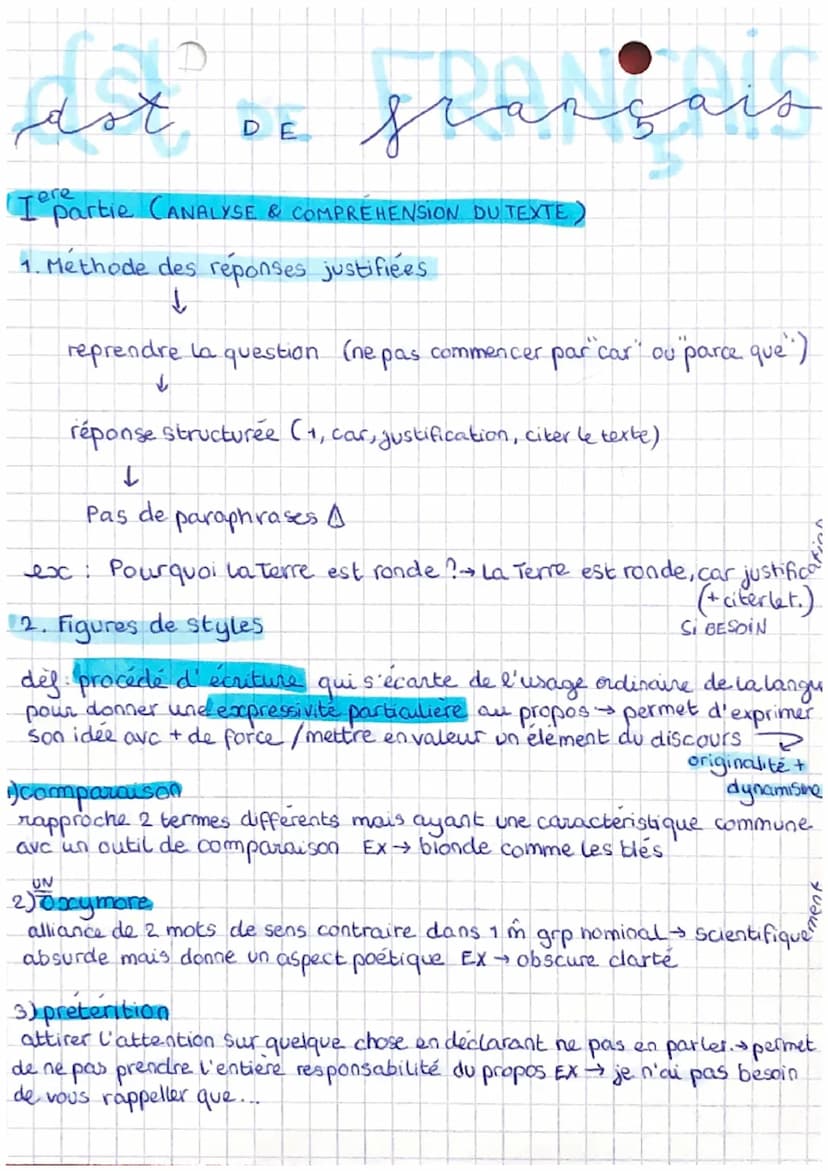 dst DE français
Iere partie (ANALYSE & COMPRÉHENSION DU TEXTE)
1. Méthode des réponses justifiées
↓
reprendre la question (ne pas commencer par "car" ou "parce que")
↓
réponse structurée (1, car, justification, citer le texte)
↓
Pas de paraphrases ⚠
ex : Pourquoi la Terre est ronde ? → La Terre est ronde, car justification
(+ citer le t.)
SI BESOIN
2. Figures de styles
déf : procédé d'écriture qui s'écarte de l'usage ordinaire de la langue
pour donner une expressivité particulière au propos → permet d'exprimer
son idée avc + de force / mettre en valeur un élément du discours →
originalité +
dynamisme
1) comparaison
rapproche 2 termes différents mais ayant une caractéristique commune
avc un outil de comparaison Ex → blonde comme les blés
UN
2) oxymore
alliance de 2 mots de sens contraire dans 1 m̂ grp nominal → scientifiquement
absurde mais donne un aspect poétique EX → obscure clarté
3) prétérition
attirer l'attention sur quelque chose en déclarant ne pas en parler. → permet
de ne pas prendre l'entière responsabilité du propos EX → je n'ai pas besoin
de vous rappeller que...